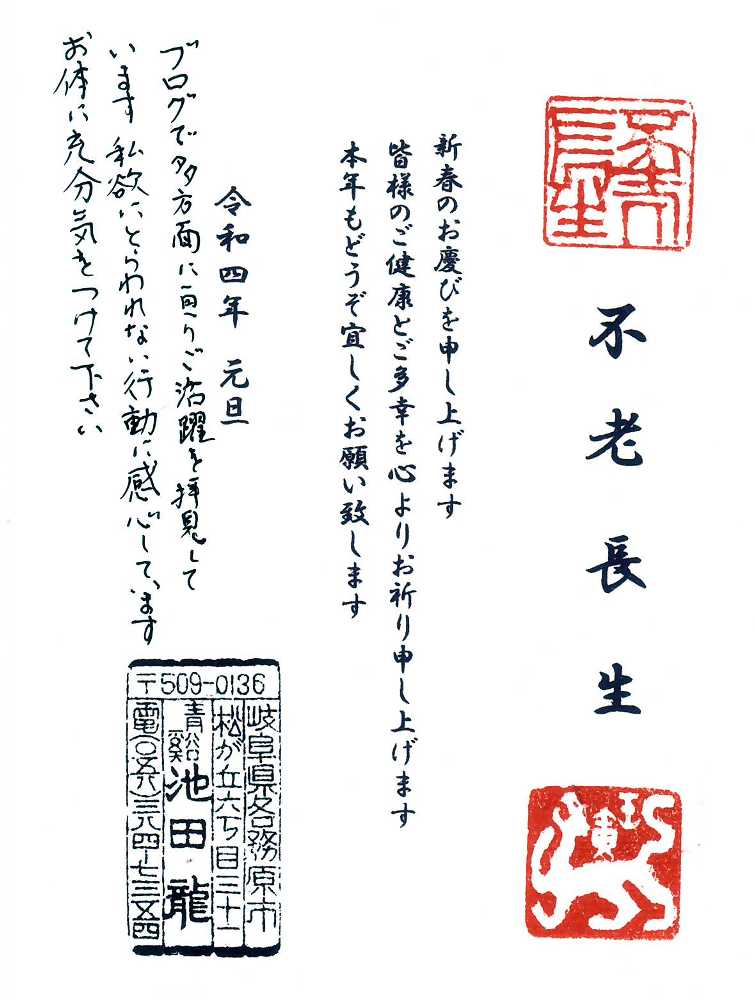 不老
長生
不老長生
壬寅
新春のお慶びを申し上げます
皆様のご健康とご多幸を心よりお祈り申し上げます
本年もどうぞ宜しくお願い致します
令和四年 元旦
ブログで多方面に亘りご活躍を拝見して
います 私欲にとらわれない行動に感心しています
お体に充分気をつけて下さい
〒509-0136
岐阜県各務原市
松が丘六丁目三十一
青谿 池田龍
電(〇五八)三八四-七三五四